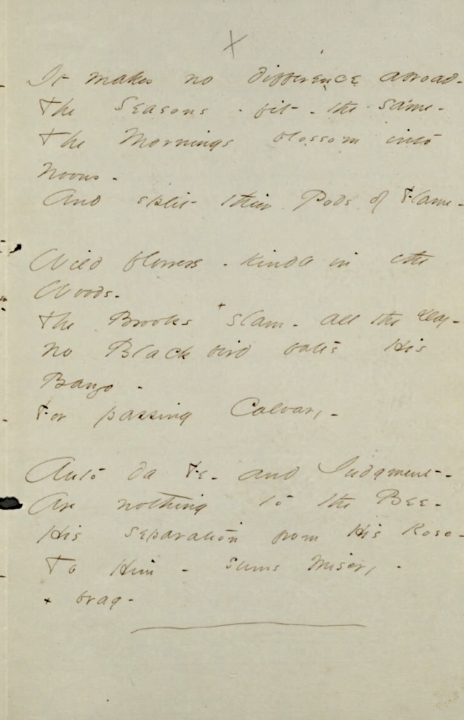 It makes no difference abroad -
The Seasons - fit - the same -
The Mornings blossom into
Noons -
And split their Pods of Flame -
Wild flowers - kindle in the
Woods -
The Brooks + slam - all the Day -
No Black bird bates His
Banjo -
For passing Calvary -
Auto da Fe - and Judgment -
Are nothing to the Bee -
His separation from His Rose -
To Him - sums Misery -
+ brag -